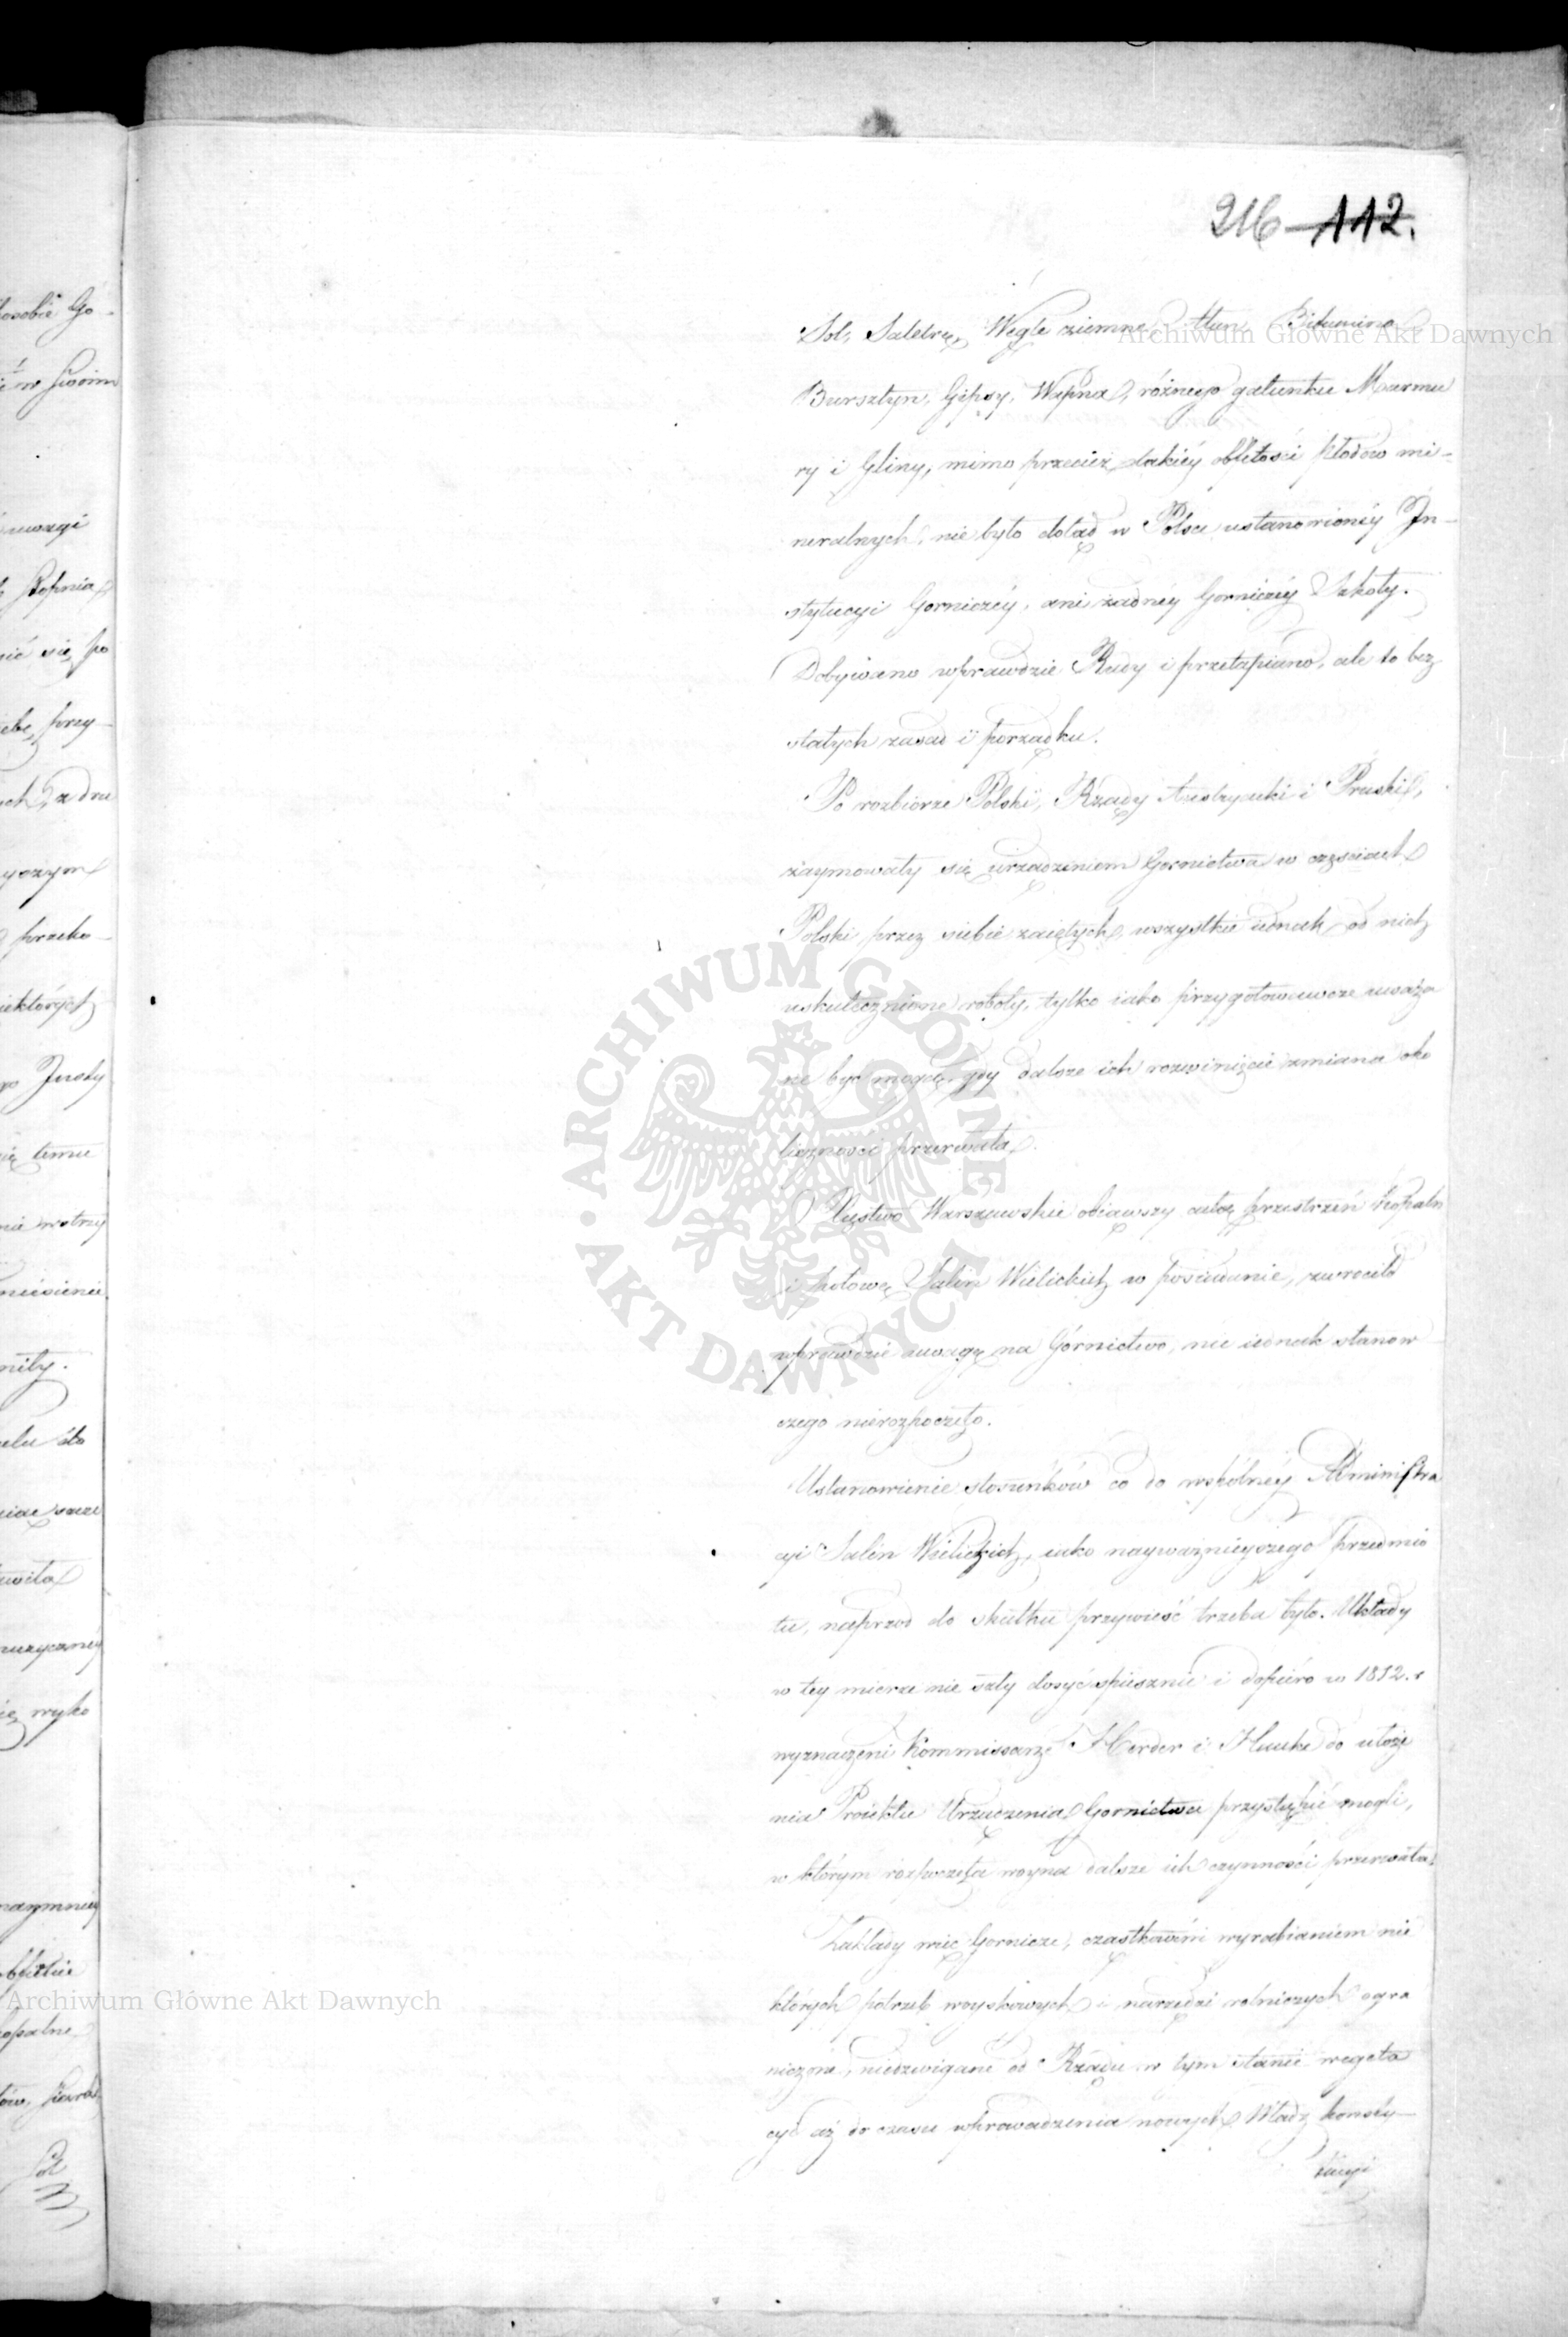 216 112.
Sól, Saletrę, Węgle ziemne, Ałun, Bitumina
Bursztyn, Gipsy, Wapna, różnego gatunku Marmu
ry i Gliny, mimo przecież takiéy obfitości płodów mi-
neralnych, nie było dotąd w Polsce ustanowionéy In-
stytucyi Gorniczéy, ani żadnéy Gorniczéy Szkoły.
Dobywano wprawdzie Rudy i przetapiano, ale to bez
stałych zasad i porządku.
Po rozbiorze Polski, Rządy Austryacki i Pruski,
zaymowały się urządzeniem Gornictwa w częściach
Polski przez siebie zaiętych, wszystkie iednak od nich
uskutecznione roboty, tylko iako przygotowawcze uważa
ne być mogą, gdy dalsze ich rozwinięcie zmiana oko
liczności przerwała.
Xięstwo Warszawskie obiąwszy całą przestrzeń Kopaln
i połowę Salin Wielickich w posiadanie, zwróciło
wprawdzie uwagę na Górnictwo, nic iednak stanow
czego nierozpoczęto.
Ustanowienie stosunków co do wspólnéy Administra
cyi Salin Wielickich, iako nayważnieyszego przedmio
tu, naprzod do skutku przywieść trzeba było. Układy
w tey mierze nie szły dosyć spiesznie i dopiéro w 1812. r
wyznaczeni Kommissarze Herder i Hauke do ułoże
nia Proiektu Urządzenia Gornictwa przystąpić mogli,
w którym rozpoczęta woyna dalsze ich czynności przerwała.
Zakłady więc Gornicze, cząstkowém wyrabianiem nie
których potrzeb woyskowych i narzędzi rolniczych ogra
niczone, niedzwigane od Rządu w tym stanie wegeto
cyi aż do czasu wprowadzenia nowych Władz konsty-
tucyi
Archiwum Główne Akt Dawnych
ARCHIWUM GŁÓWNE AKT DAWNYCH
Archiwum Główne Akt Dawnych